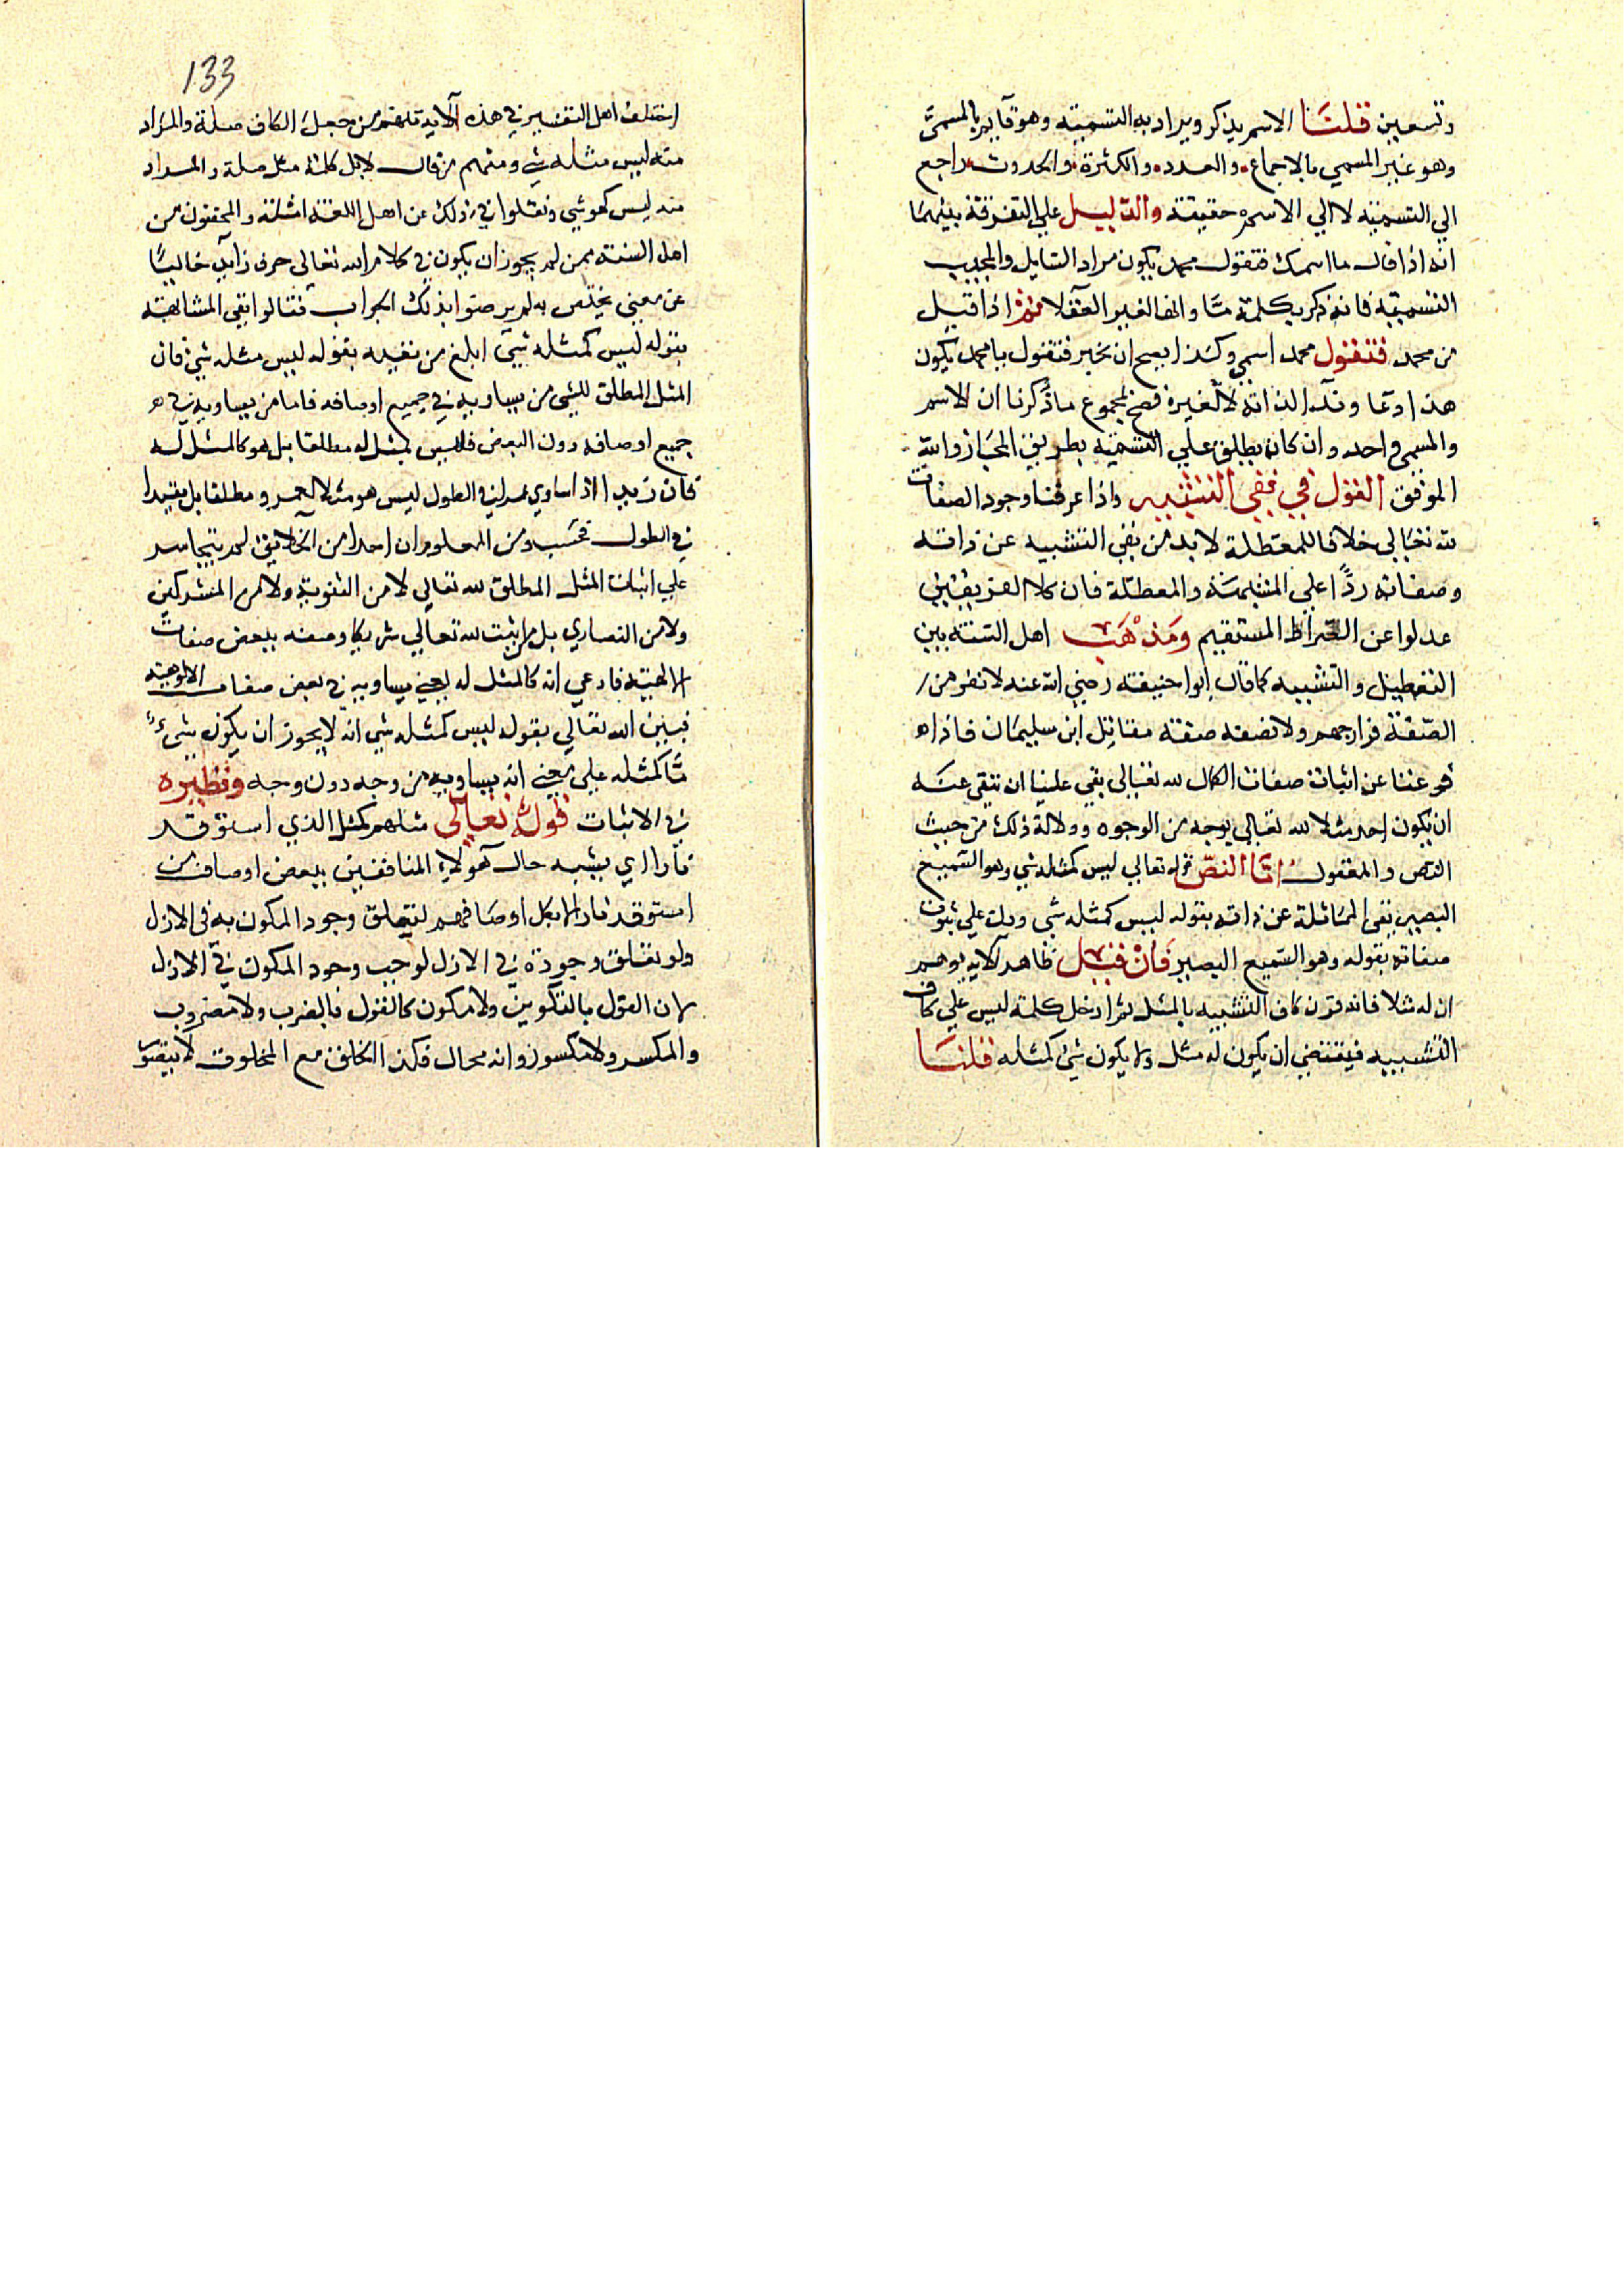 وتسعين قلنا الاسم يذكر ويراد به التسمية وهو قايم بالمسمي
وهو غير المسمي بالاجماع والعدد والكثرة والحدوث راجع
الي التسمية لا الي الاسم حقيقة والدليل علي التفرقة بينهما
انه اذا قال ما اسمك فتقول محمد يكون مراد السايل والمجيب
التسمية فانه ذكر بكلمة ما وانها لغير العقلا ثم اذا قيل
من محمد فتقول محمد اسمي وكذا يصح ان تخبر فتقول يا محمد يكون
هذا دعا وندآ لذاته لا لغيره فصح بمجموع ما ذكرنا ان الاسم
والمسمي واحد وان كان يطلق علي التسمية بطريق المجاز والله
الموفق القول في نفي التشبيه واذا عرفنا وجود الصفات
لله تعالي خلافا للمعتطلة لا بد من نفي التشبيه عن ذاته
وصفاته ردًا علي المشبهة والمعطلة فان كلا الفريقين
عدلوا عن الصراط المستقيم ومذهب اهل السنة بين
التعطيل والتشبيه كما قال ابوا حنيفة رضي الله عنه لا تفر من
الصفة فرار جهم ولا تصفه صفة مقاتل ابن سليمان فاذا
فرغنا عن اثبات صفات الكمال لله تعالي بقي علينا ان ننفي عنه
ان يكون احد مثلا لله تعالي بوجه من الوجوه ودلالة ذلك من حيث
النص والمعقول اما النص قوله تعالي ليس كمثله شي وهو السميع
البصير نفي المماثلة عن ذاته بقوله ليس كمثله شي ودل علي ثبوت
صفاته بقوله وهو السميع البصير فان قيل ظاهر الاية يوهم
ان له مثلا فانه قرن كاف التشبيه بالمثل ثم ادخل كلمة ليس علي كاف
التشبيه فيقتضي ان يكون له مثل ولا يكون شي كمثله قلنا
133
اختلف اهل التفسير في هذه الاية فمنهم من جعل الكاف صلة والمراد
منه ليس مثله شي ومنهم من قال لا بل كلمة مثل صلة والمراد
منه ليس كهو شي ونقلوا في ذلك عن اهل اللغة امثلة والمحققون من
اهل السنة ممن لم يجوز ان يكون في كلام الله تعالي حرف زايد خاليًا
عن معني يختص به لم يرضوا بذلك الجواب فقالوا نفي المشابهة
بقوله ليس كمثله شي ابلغ من نفيه بقوله ليس مثله شي فان
المثل المطلق للشي من يساويه في جميع اوصافه فاما من يساويه في
جميع اوصافه دون البعض فليس بمثل له مطلقا بل هو كالمثل له
فان زيدا اذا ساوي عمرا في الطول ليس هو مثلا لعمرو مطلقا بل مقيدا
في الطول فحسب ومن المعلوم ان احدا من الخلايق لم يتجاسر
علي اثبات المثل المطلق لله تعالي لا من الثنوية ولا من المشركين
ولا من النصاري بل من اثبت لله تعالي شريكا وصفه ببعض صفات
الالهية فادعي انه كالمثل له بمعني يساويه في بعض صفات الالوهية
فبين الله تعالي بقوله ليس كمثله شي انه لا يجوز ان يكون شيءٌ
ما كمثله علي معني انه يساويه من وجه دون وجه ونظيره
في الاثبات قوله تعالي مثلهم كمثل الذي استوقد
نارا اي يشبه حال هولاء المنافقين ببعض اوصاف من
استوقد نارا لا بكل اوصافهم لتعلق وجود المكون به في الازل
ولو تعلق وجوده في الازل لوجب وجود المكون في الازل
لان القول بالتكوين ولا مكون كالقول بالضرب ولا مضروب
والمكسر ولا مكسور وانه محال فكذا الخلق مع المخلوق لا يتصور